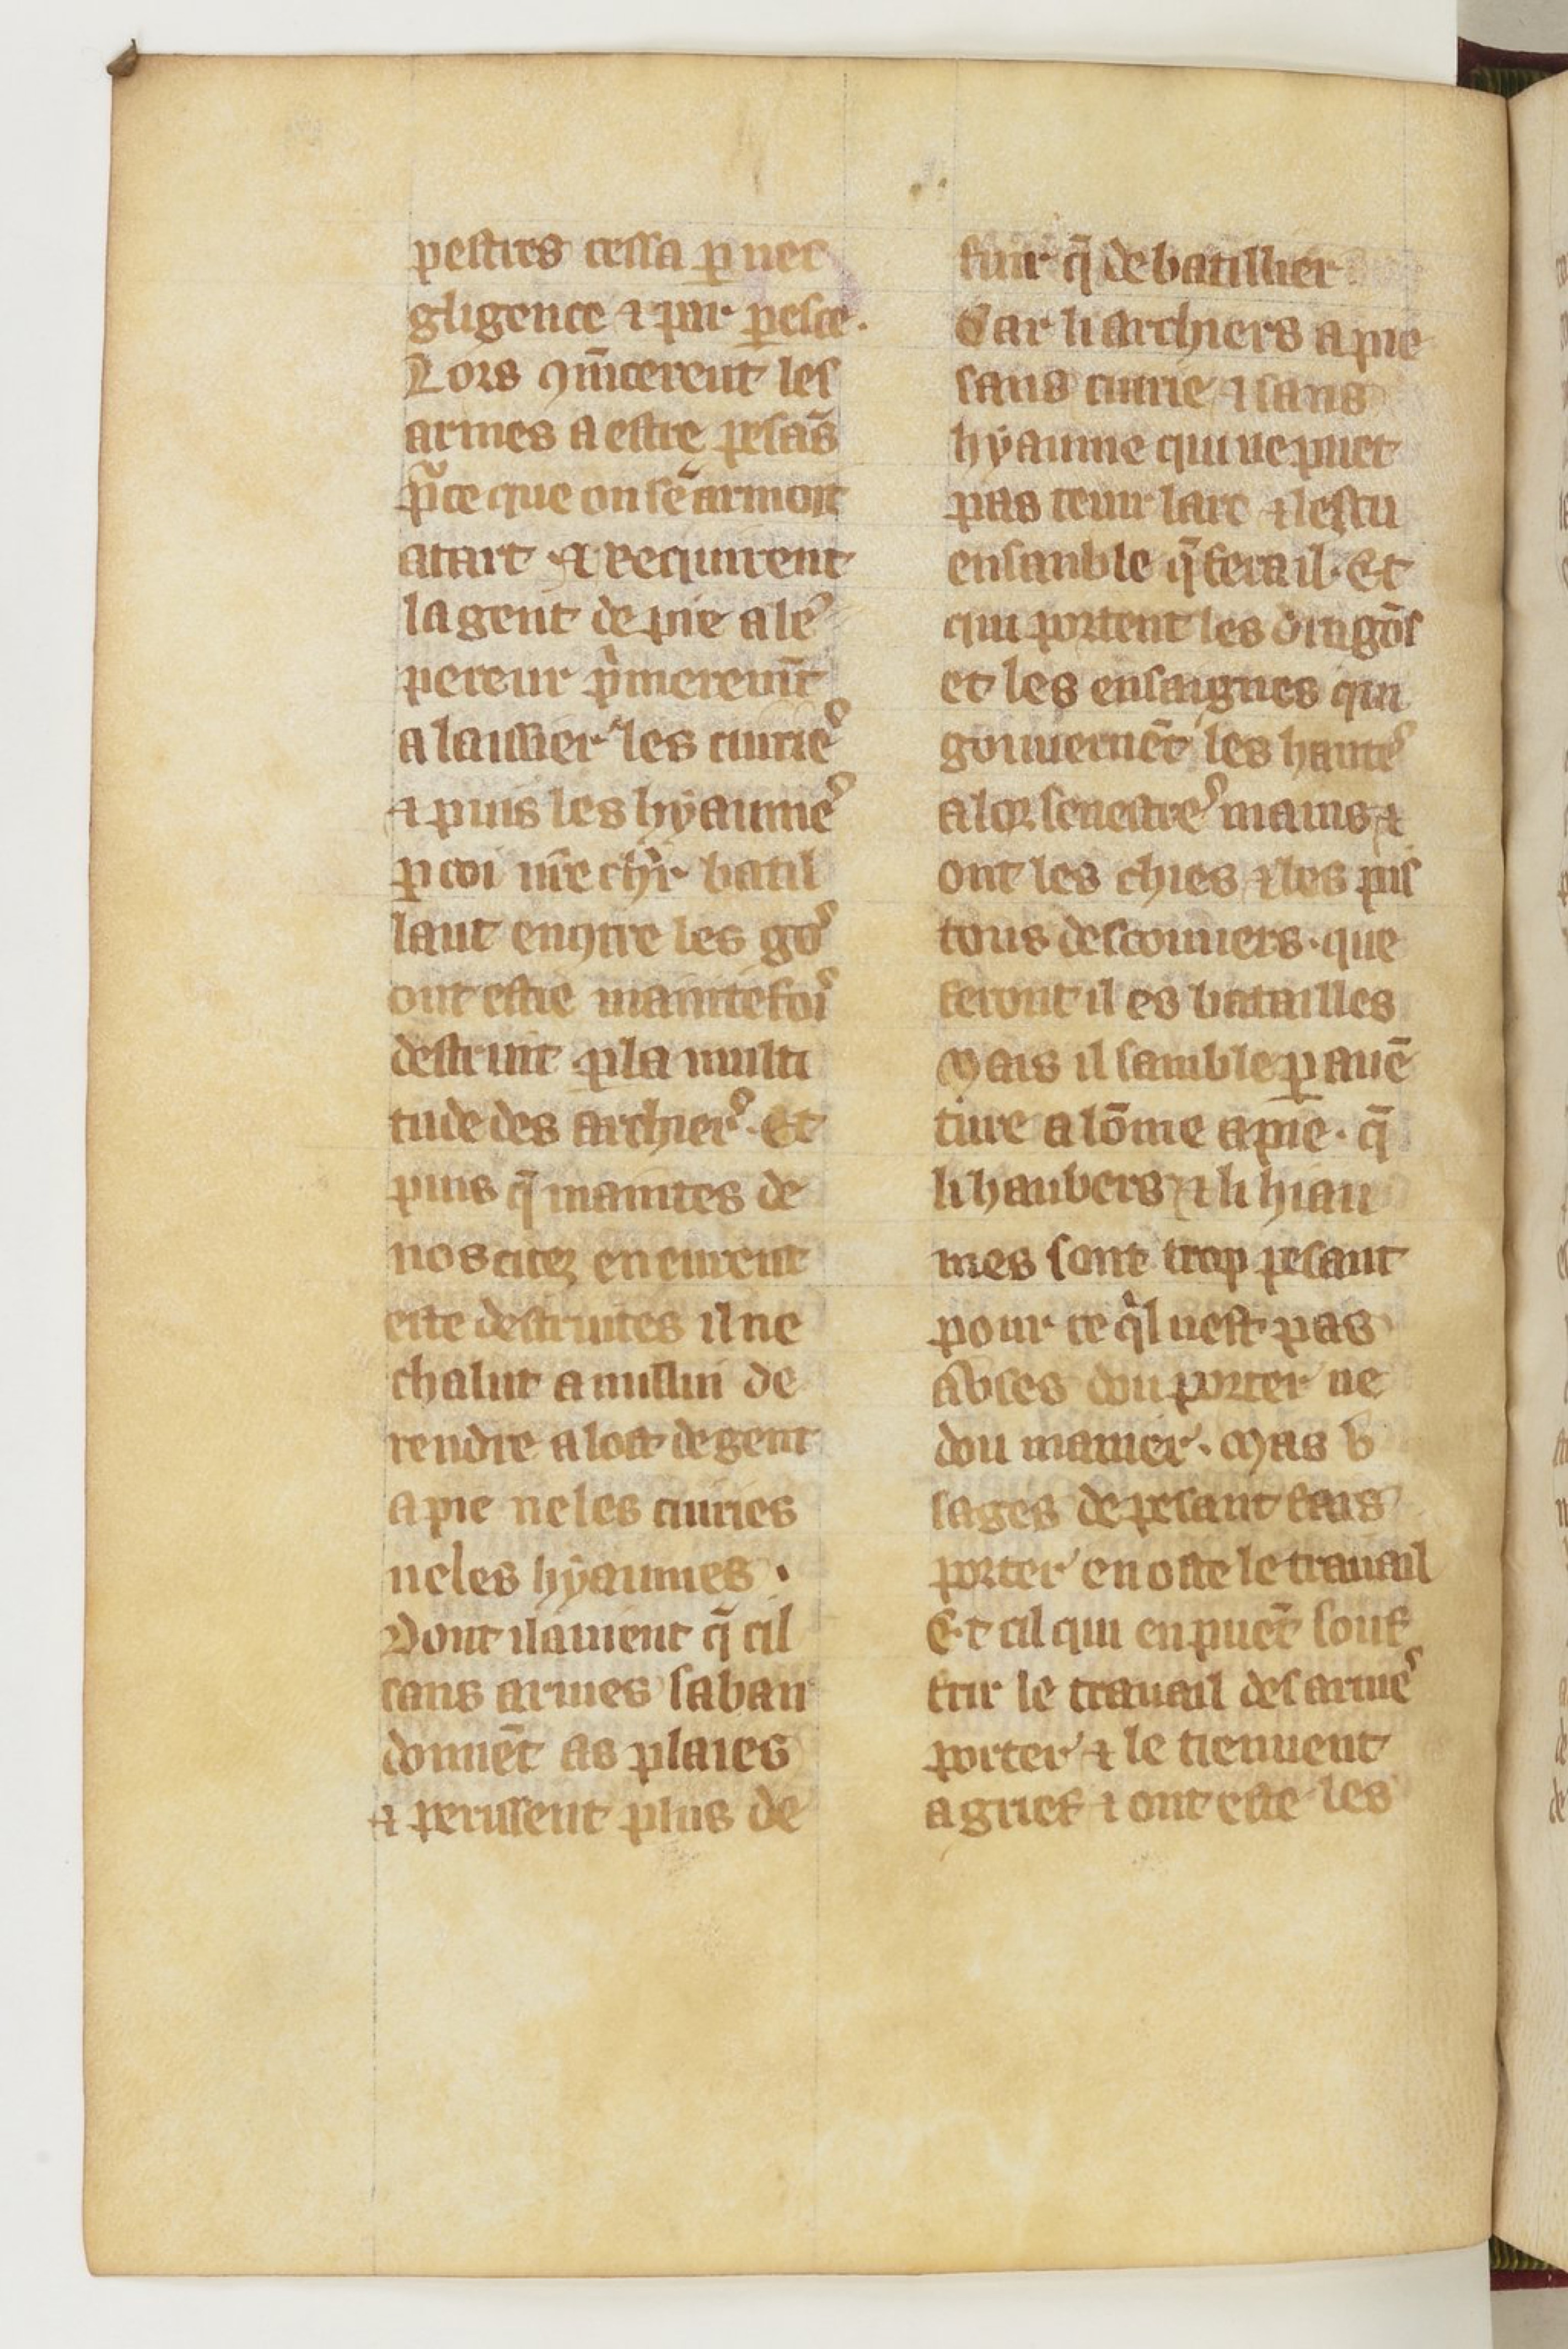 pestres cessa ꝑ nec
gligence ⁊ par ꝑesce.
Lors ꝯm̄cerent les
armes a estre pesās
p̄ce que on sē armoit
atart. ⁊ requirent
la gent de pie a lē
pereur p̍merem̄t
a laissier les cuirieꝰ
⁊ puis les hyaumeꝰ
ꝑ coi nr̄e chr̄ batil
lant enꝯtre les goꝰ
ont estre maintefoiꝰ
destruit ꝑ la multi
tude des archierꝰ. Et
puis q̄ maintes de
nos citez en eurent
este destruites il ne
chalut a nullui de
rendre a lost de gent
a pie ne les cuiries
ne les hyaumes.
Dont il auient q̄ cil
sans armes saban
donnēt as plaies
⁊ perissent plus de
fuir q̄ de batillier
Car li archiers a pie
sans cuirie ⁊ sans
hyaume qui ne puet
pas tenir larc ⁊ lescu
ensanble q̄ fera il. Et
qui portent les dragōs
et les ensaignes qui
gouuernēt les hanteꝰ
a loꝝ senestreꝰ mains ⁊
ont les chies ⁊ les pis
tous descouuers. que
feront il es batailles
Mais il samble ꝑ auē
ture a lōme a pie. q̄
li haubers ⁊ li hiau
mes sont trop pesant
pour ce q̍l nest pas
a vses dou porter ne
dou manier. Mas v
sages de pesant fais
porter en oste le trauail
Et cil qui en puēt souf
frir le trauail des armeꝰ
porter ⁊ le tienuent
a grief ⁊ ont este les